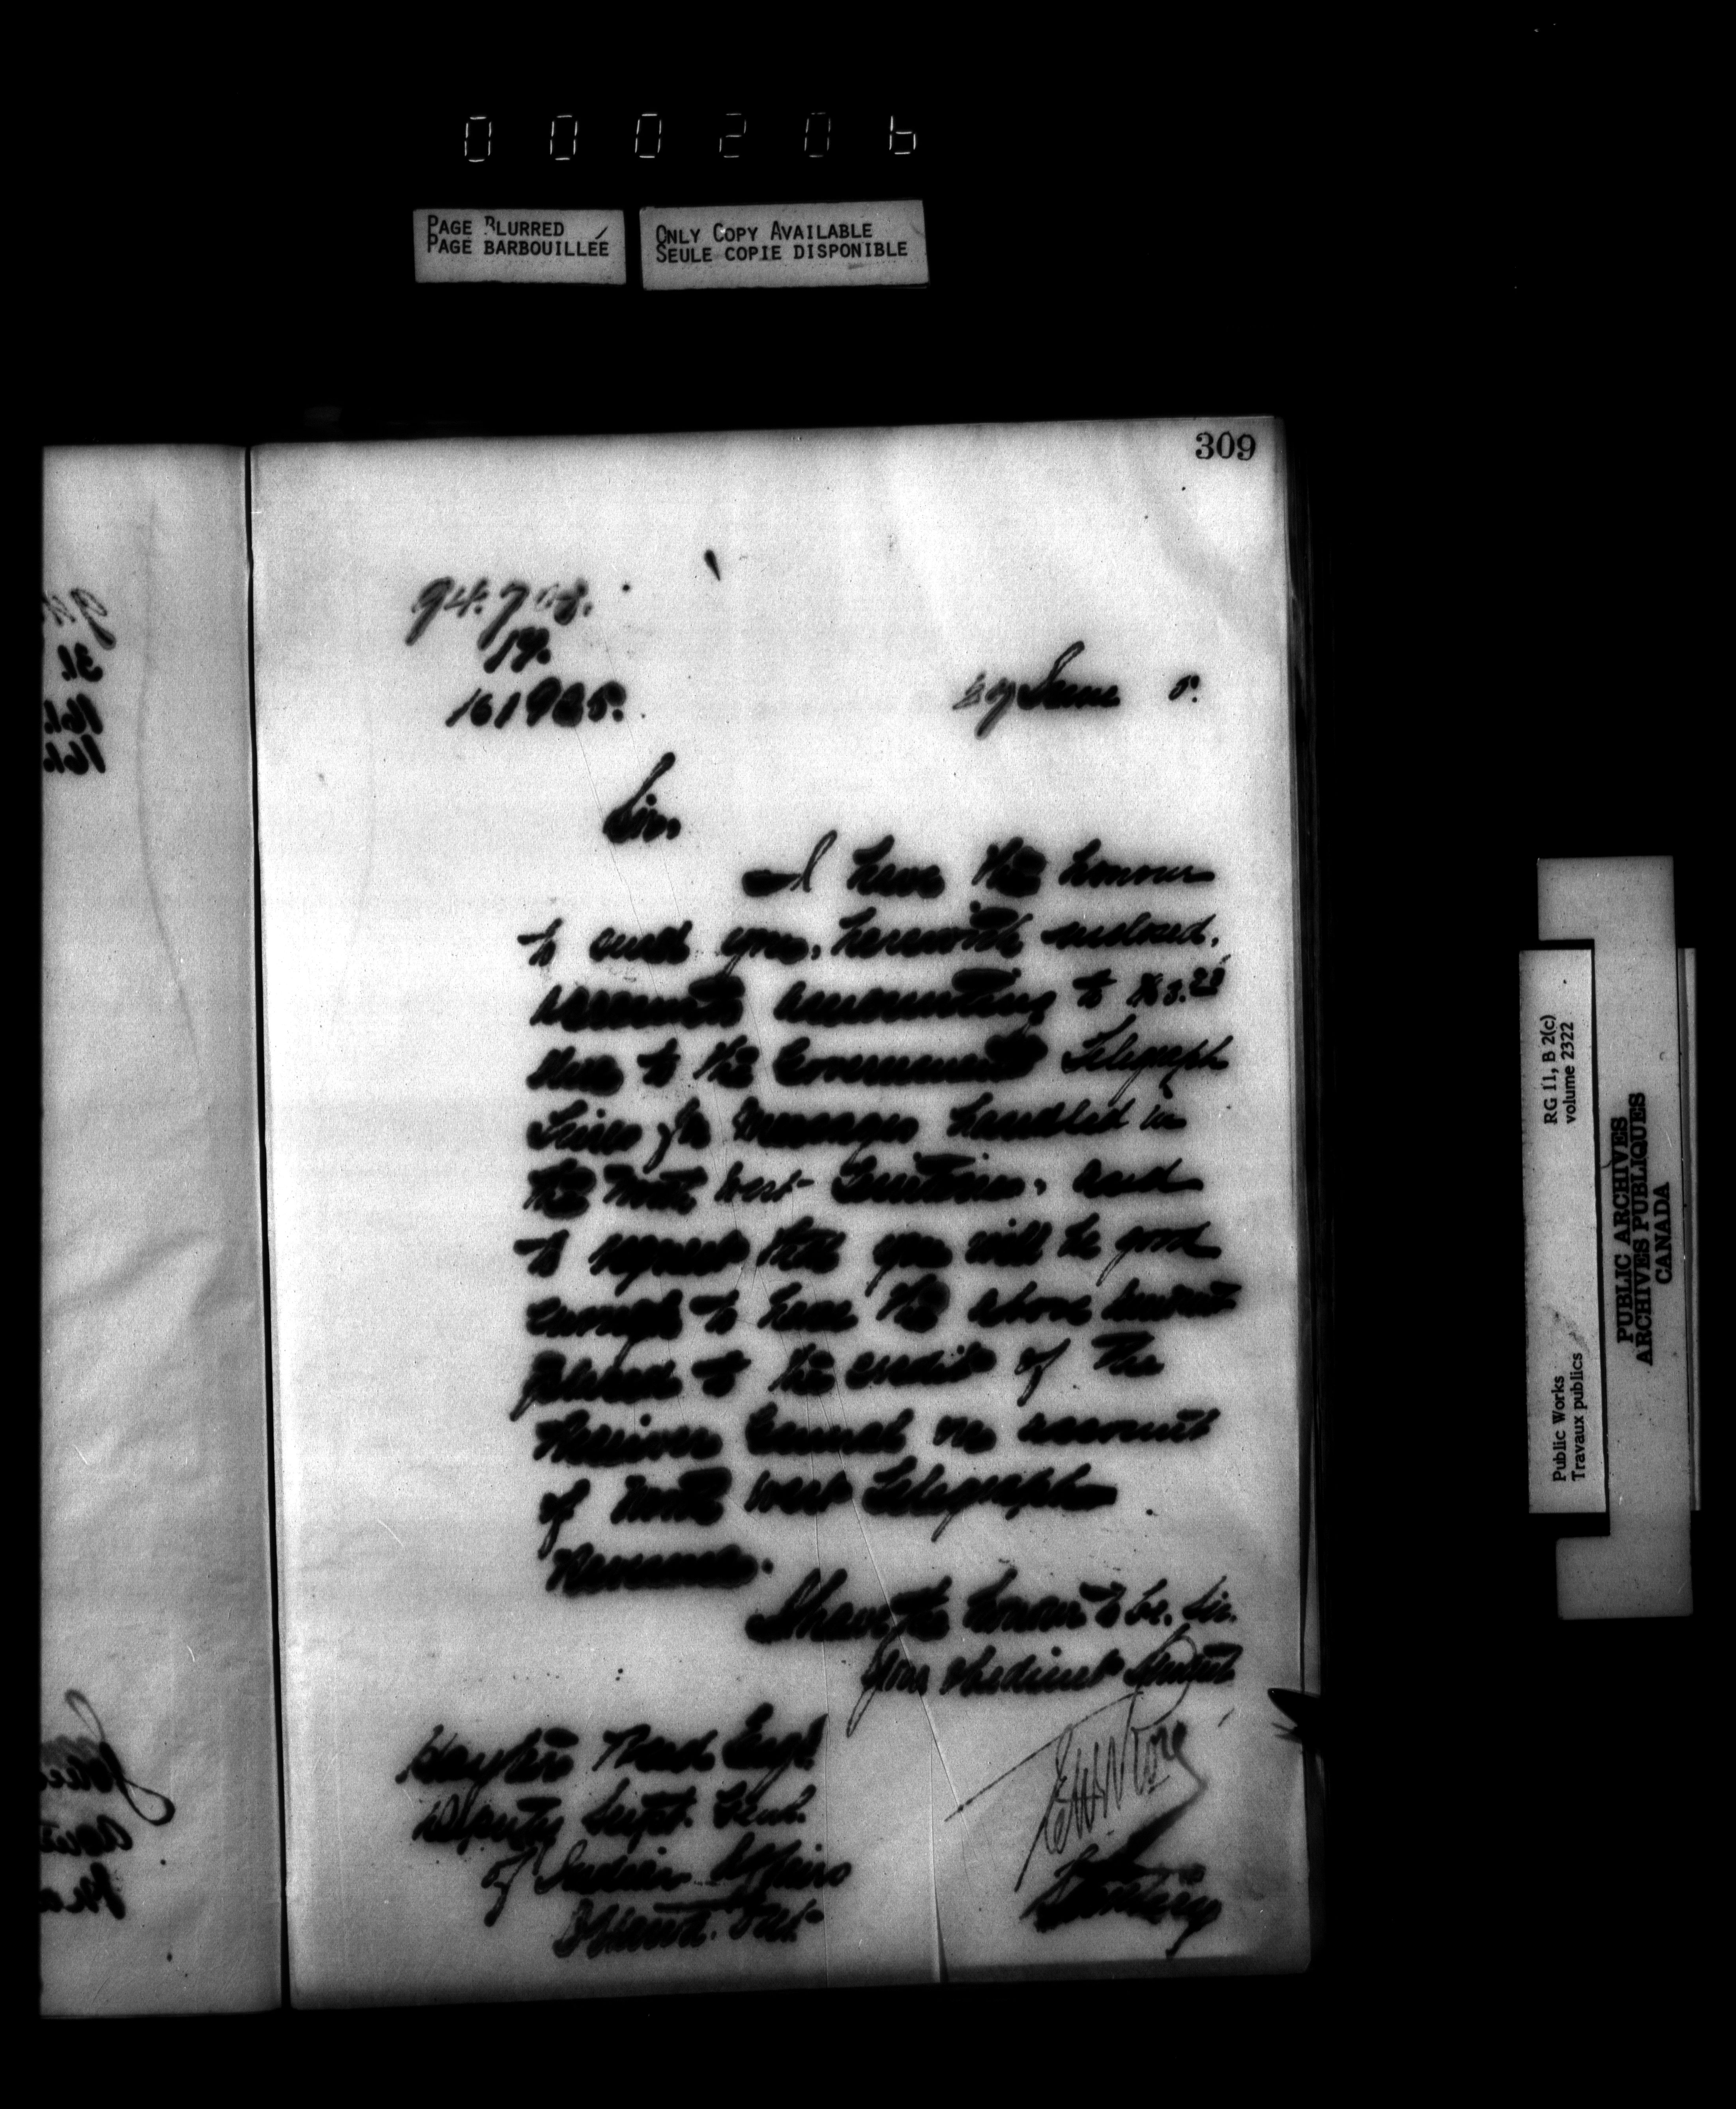 000206
PAGE BLURRED
PAGE BARBOUILLÉE
ONLY COPY AVAILABLE
SEULE COPIE DISPONIBLE
309
19.
161985.
27 June 5.
Sir,
I have the honour
to send you, herewith enclosed,
accounts amounting to
due to the Government Telegraph
Lines for Messages handled in
the North West Territories, and
to request that you will be good
enough to have the above amount
placed to the credit of The
Receiver General on account
of North West Telegraph
Revenue.
I have the honour to be, Sir,
Your obedient Servant
Secretary
Hayter Reed Esq.
Deputy Supt. Genl.
of Indian Affairs
Ottawa. Ont.
Public Works
Travaux publics
RG 11, B 2(c)
volume 2322
PUBLIC ARCHIVES
ARCHIVES PUBLIQUES
CANADA